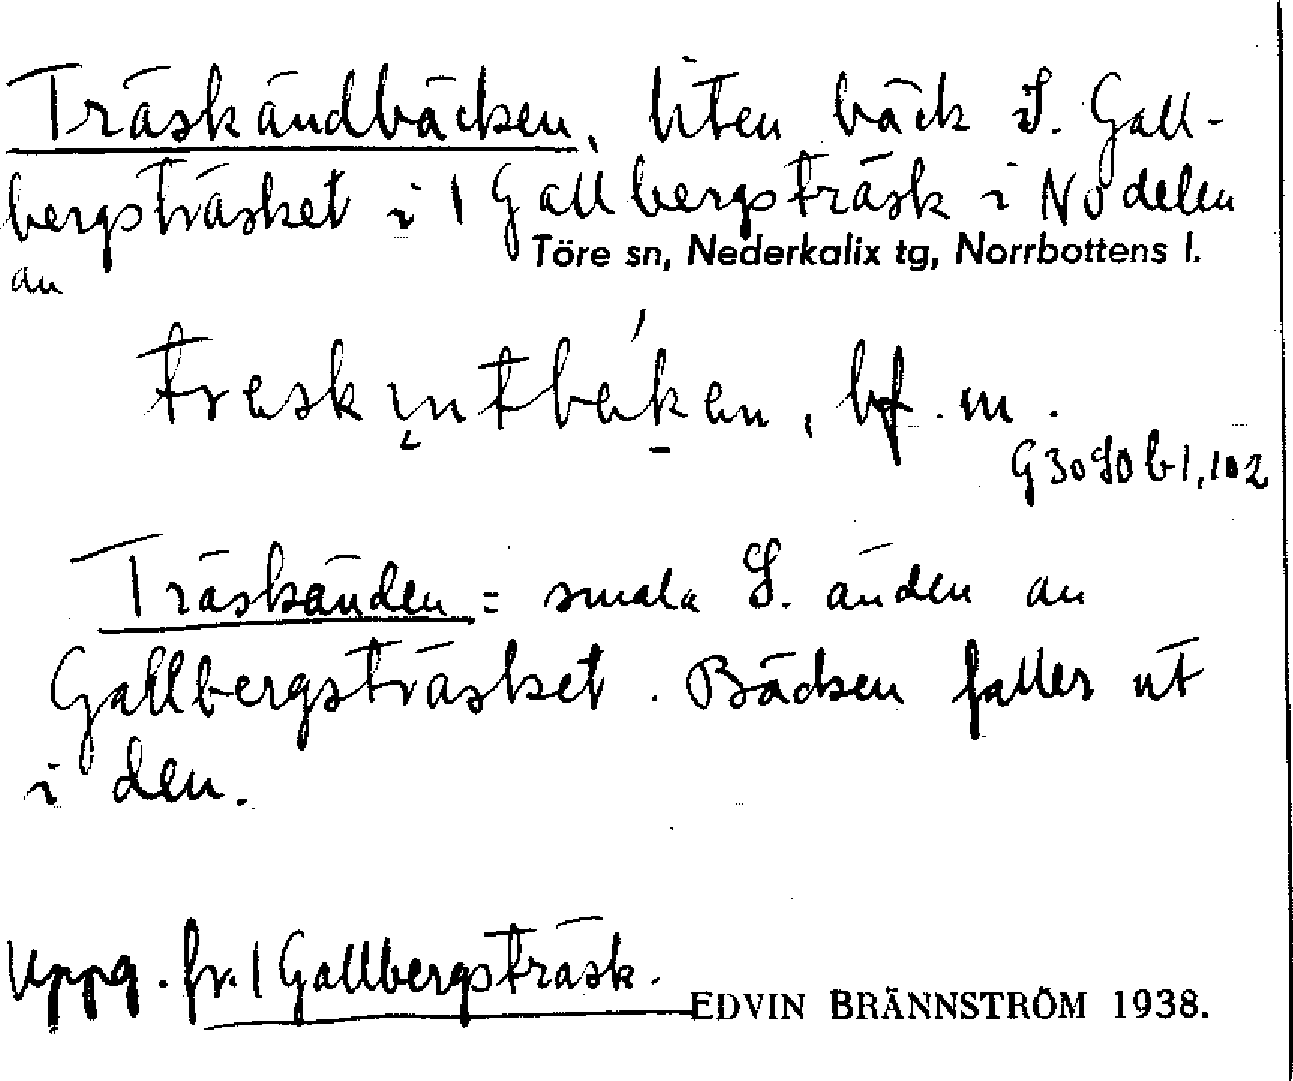 Träskändbäcken, liten bäck i S. Gall-
bergsträsket i 1 Gallbergsträsk i NO delen
Töre sn, Nederkalix tg, Norrbottens l.
av
bf. m.
Träskänden = smala S. änden av
Gallbergsträsket. Bäcken faller ut
i den.
Uppg. fr. 1 Gallbergsträsk.
EDVIN BRÄNNSTRÖM 1938.